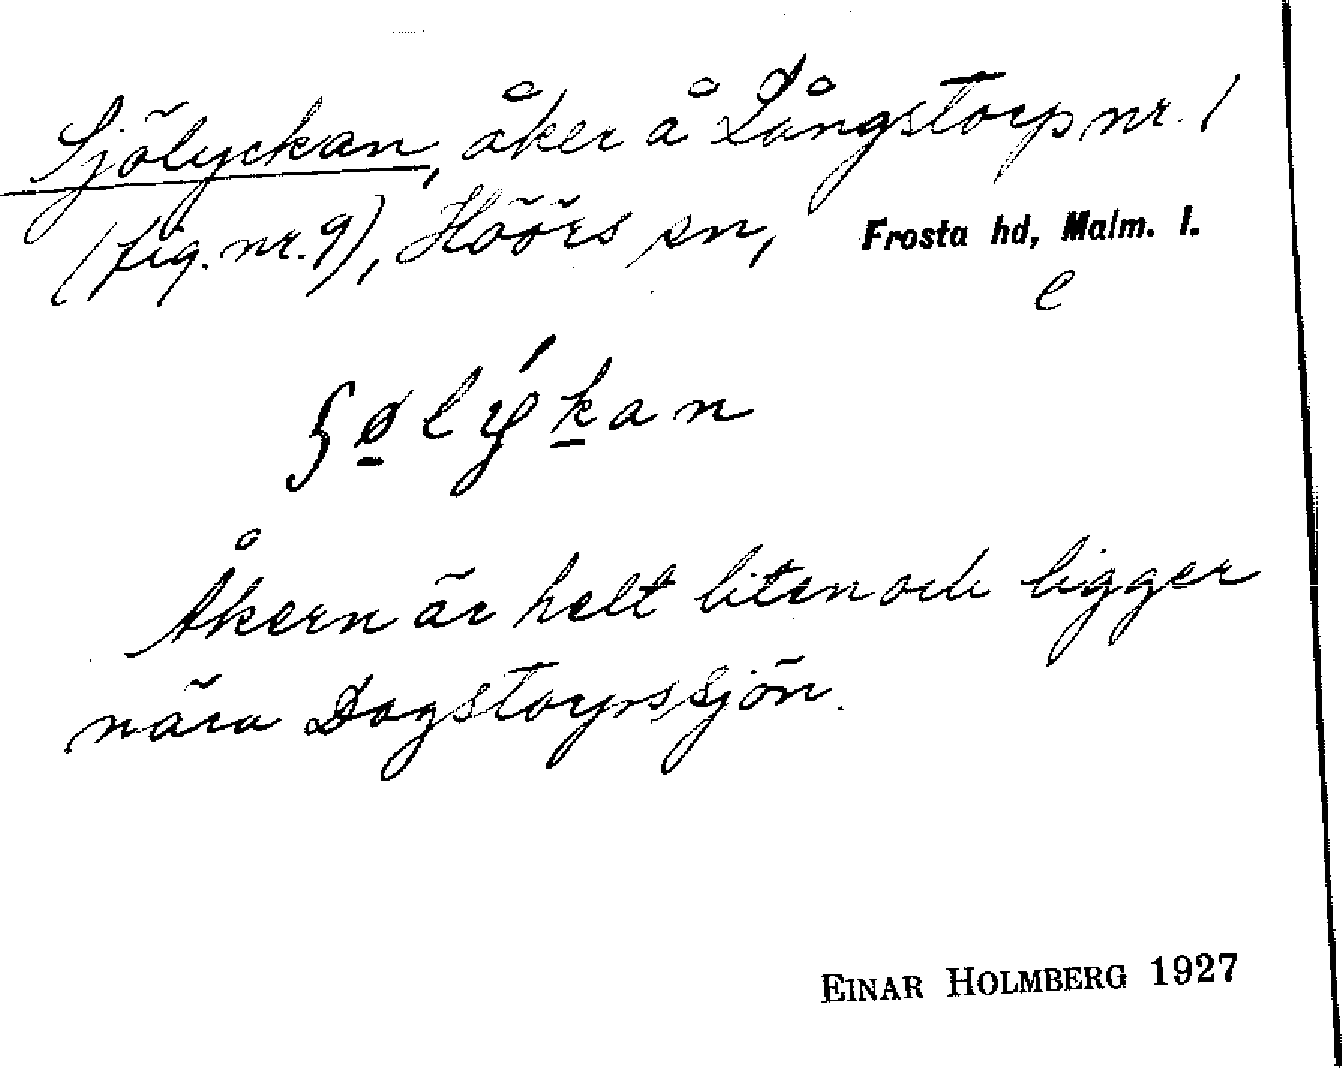 Sjölyckan, åker å Långstorp nr. 1
(fig. nr. 9), Höörs sn, Frosta hd, Malm. l.
e
ʃølýkan
Åkern är helt liten och ligger
nära Dagstorpssjön.
EINAR HOLMBERG 1927